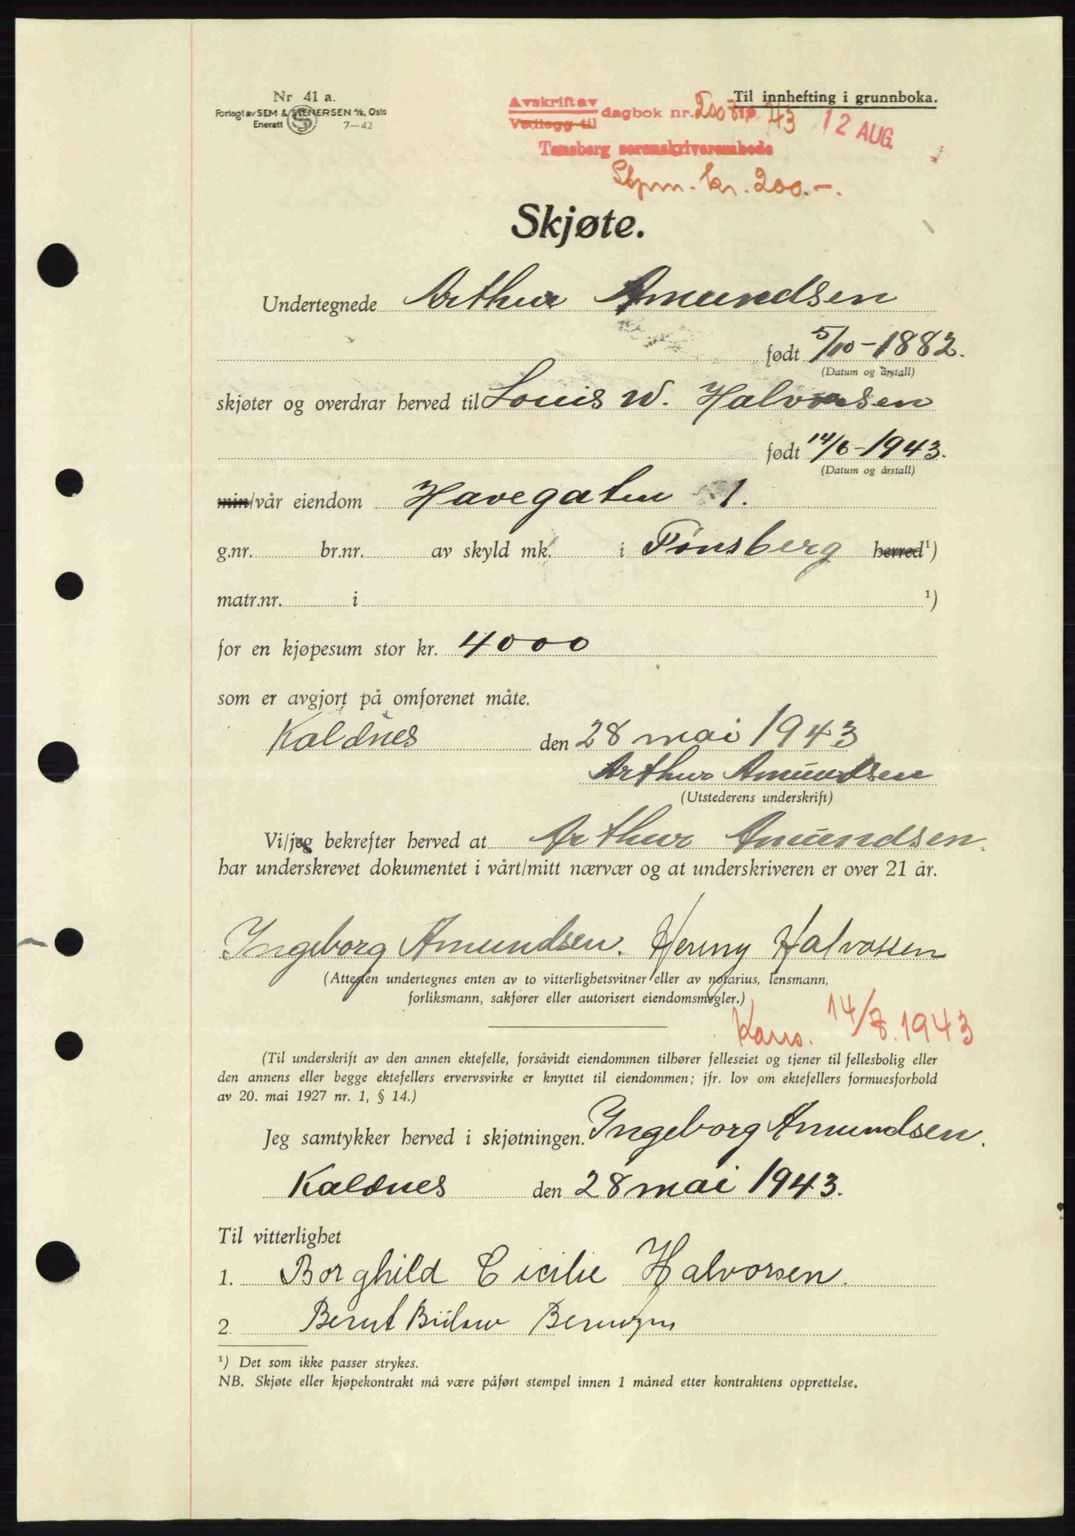 Nr 41 a.
Forlagt av SEM & STENERSEN A/S, Oslo
Enerett 7-42
Til innhefting i grunnboka.
Avskrift av
Vedlegg til
dagbok nr. 2007 19 43
12 AUG.
Tønsberg sorenskriverembede
Stpm. kr. 200.-.
Skjøte.
Undertegnede Arthur Amundsen
født 5/10-1882.
(Datum og årstall)
skjøter og overdrar herved til Louis W. Halvorsen
født 14/6-1943.
(Datum og årstall)
min/vår eiendom Havegaten 1.
g.nr. br.nr. av skyld mk. i Tønsberg herred ¹)
matr.nr. i ¹)
for en kjøpesum stor kr. 4000
som er avgjort på omforenet måte.
Kaldnes den 28 mai 1943
Arthur Amundsen
(Utstederens underskrift)
Vi/jeg bekrefter herved at Arthur Amundsen.
har underskrevet dokumentet i vårt/mitt nærvær og at underskriveren er over 21 år.
Ingeborg Amundsen. Henny Halvorsen
(Attesten undertegnes enten av to vitterlighetsvitner eller av notarius, lensmann,
forliksmann, sakfører eller autorisert eiendomsmegler.)
Kons. 14/8.1943
(Til underskrift av den annen ektefelle, forsåvidt eiendommen tilhører felleseiet og tjener til fellesbolig eller
den annens eller begge ektefellers ervervsvirke er knyttet til eiendommen; jfr. lov om ektefellers formuesforhold
av 20. mai 1927 nr. 1, § 14.)
Jeg samtykker herved i skjøtningen. Ingeborg Amundsen.
Kaldnes den 28 mai 1943.
Til vitterlighet
1. Borghild Cicilie Halvorsen.
2 Bernt Bülow
¹) Det som ikke passer strykes.
NB. Skjøte eller kjøpekontrakt må være påført stempel innen 1 måned etter kontraktens opprettelse.